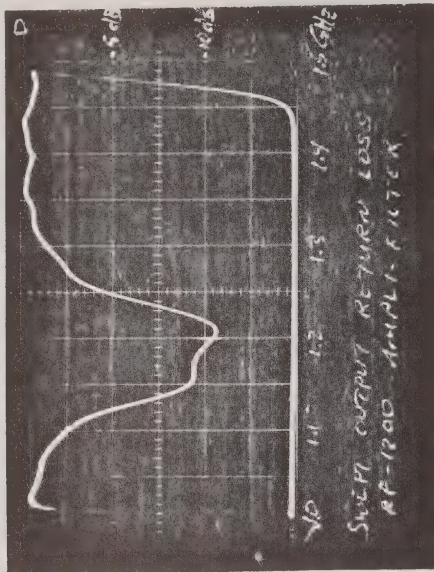 D
-5 dB
-10 dB
1.0 1.1 1.2 1.3 1.4 1.5 GHz
SWEPT OUTPUT RETURN LOSS
RF-1200 AMPLI-FILTER